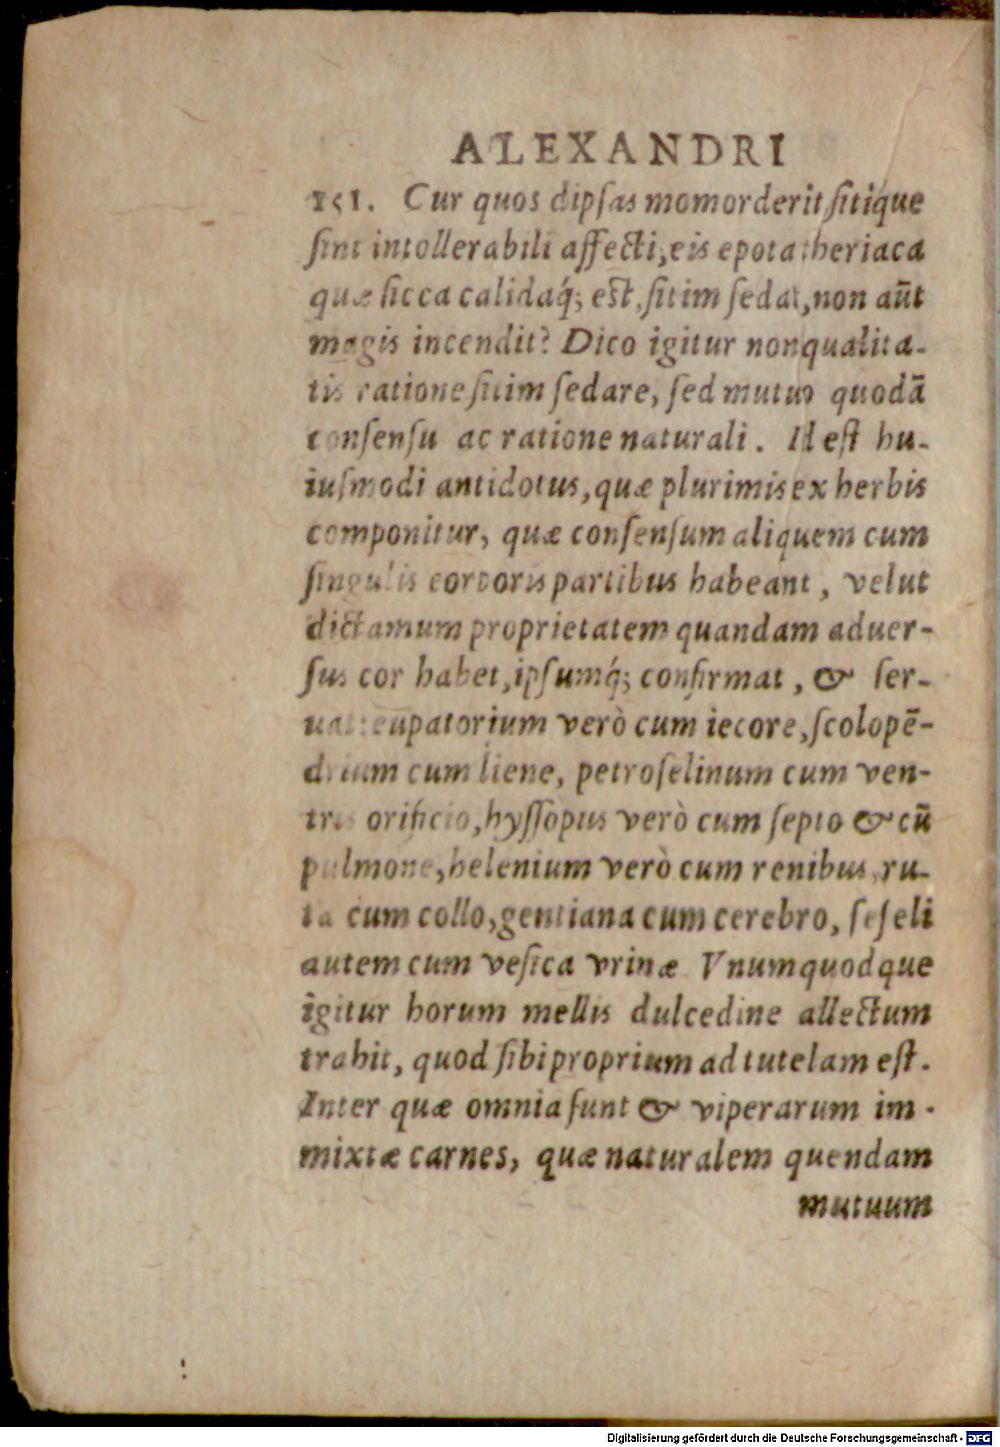 ALEXANDRI
151. Cur quos dipſas momorderit ſitique
ſint intollerabili affecti, eis epota theriaca
quæ ſicca calidaq́; eſt, ſitim ſedat, non aūt
magis incendit? Dico igitur non qualita-
tis ratione ſitim ſedare, ſed mutuo quodā
conſenſu ac ratione naturali. Id eſt hu-
iuſmodi antidotus, quæ plurimis ex herbis
componitur, quæ conſenſum aliquem cum
ſingulis corporis partibus habeant, velut
dictamum proprietatem quandam aduer-
ſus cor habet, ipſumq́; confirmat, & ſer-
uat: eupatorium verò cum iecore, ſcolopē-
drium cum liene, petroſelinum cum ven-
tris orificio, hyſſopus verò cum ſepto & cū
pulmone, helenium verò cum renibus, ru-
ta cum collo, gentiana cum cerebro, ſeſeli
autem cum veſica vrinæ Vnumquodque
igitur horum mellis dulcedine allectum
trahit, quod ſibi proprium ad tutelam eſt.
Inter quæ omnia ſunt & viperarum im-
mixtæ carnes, quæ naturalem quendam
mutuum
Digitalisierung gefördert durch die Deutsche Forschungsgemeinschaft - DFG